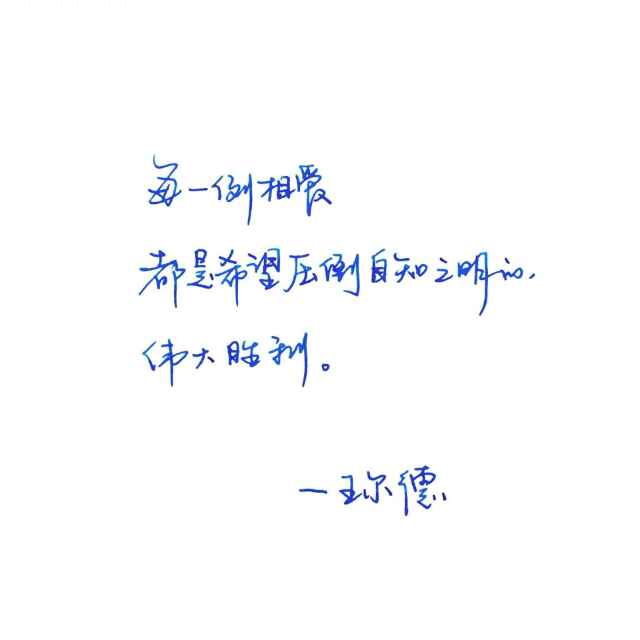 每一例相爱
都是希望压倒自知之明的，
伟大胜利。
一王尔德